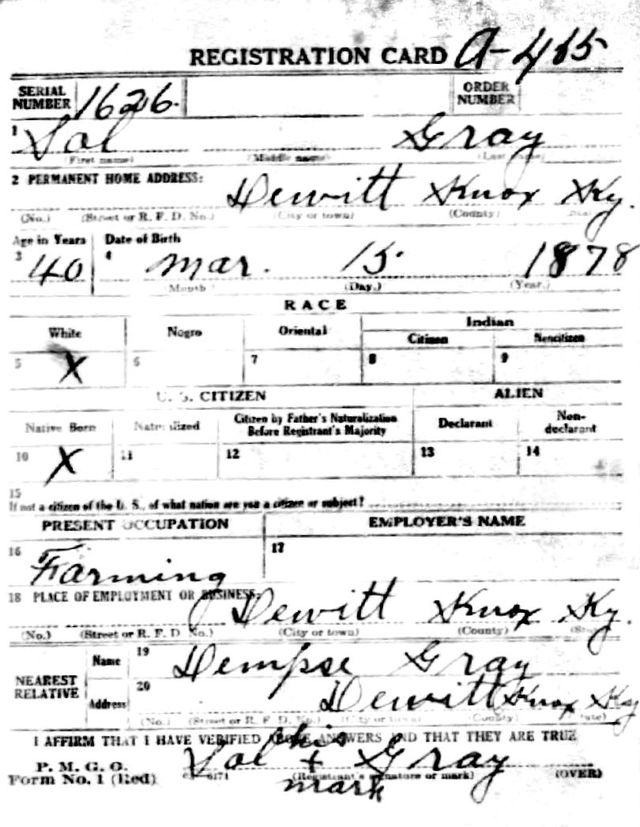 REGISTRATION CARD A-465
SERIAL NUMBER 1626. ORDER NUMBER
1 Sol Gray
(First name) (Middle name) (Last name)
2 PERMANENT HOME ADDRESS: Dewitt Knox Ky.
(No.) (Street or R. F. D. No.) (City or town) (County) (State)
Age in Years Date of Birth
3 40 4 Mar. 15 1878
(Month) (Day.) (Year.)
RACE
White Negro Oriental Indian
Citizen Noncitizen
5 X 6 7 8 9
U. S. CITIZEN ALIEN
Native Born Naturalized Citizen by Father's Naturalization Before Registrant's Majority Declarant Non-declarant
10 X 11 12 13 14
15
If not a citizen of the U. S., of what nation are you a citizen or subject?
PRESENT OCCUPATION EMPLOYER'S NAME
16 Farming 17
18 PLACE OF EMPLOYMENT OR BUSINESS: Dewitt Knox Ky.
(No.) (Street or R. F. D. No.) (City or town) (County) (State)
NEAREST RELATIVE Name 19 Dempse Gray
Address 20 Dewitt Knox Ky
(No.) (Street or R. F. D. No.) (City or town) (County) (State)
I AFFIRM THAT I HAVE VERIFIED ABOVE ANSWERS AND THAT THEY ARE TRUE
P. M. G. O.
Form No. 1 (Red) Sol his + mark Gray
(Registrant's signature or mark) (OVER)